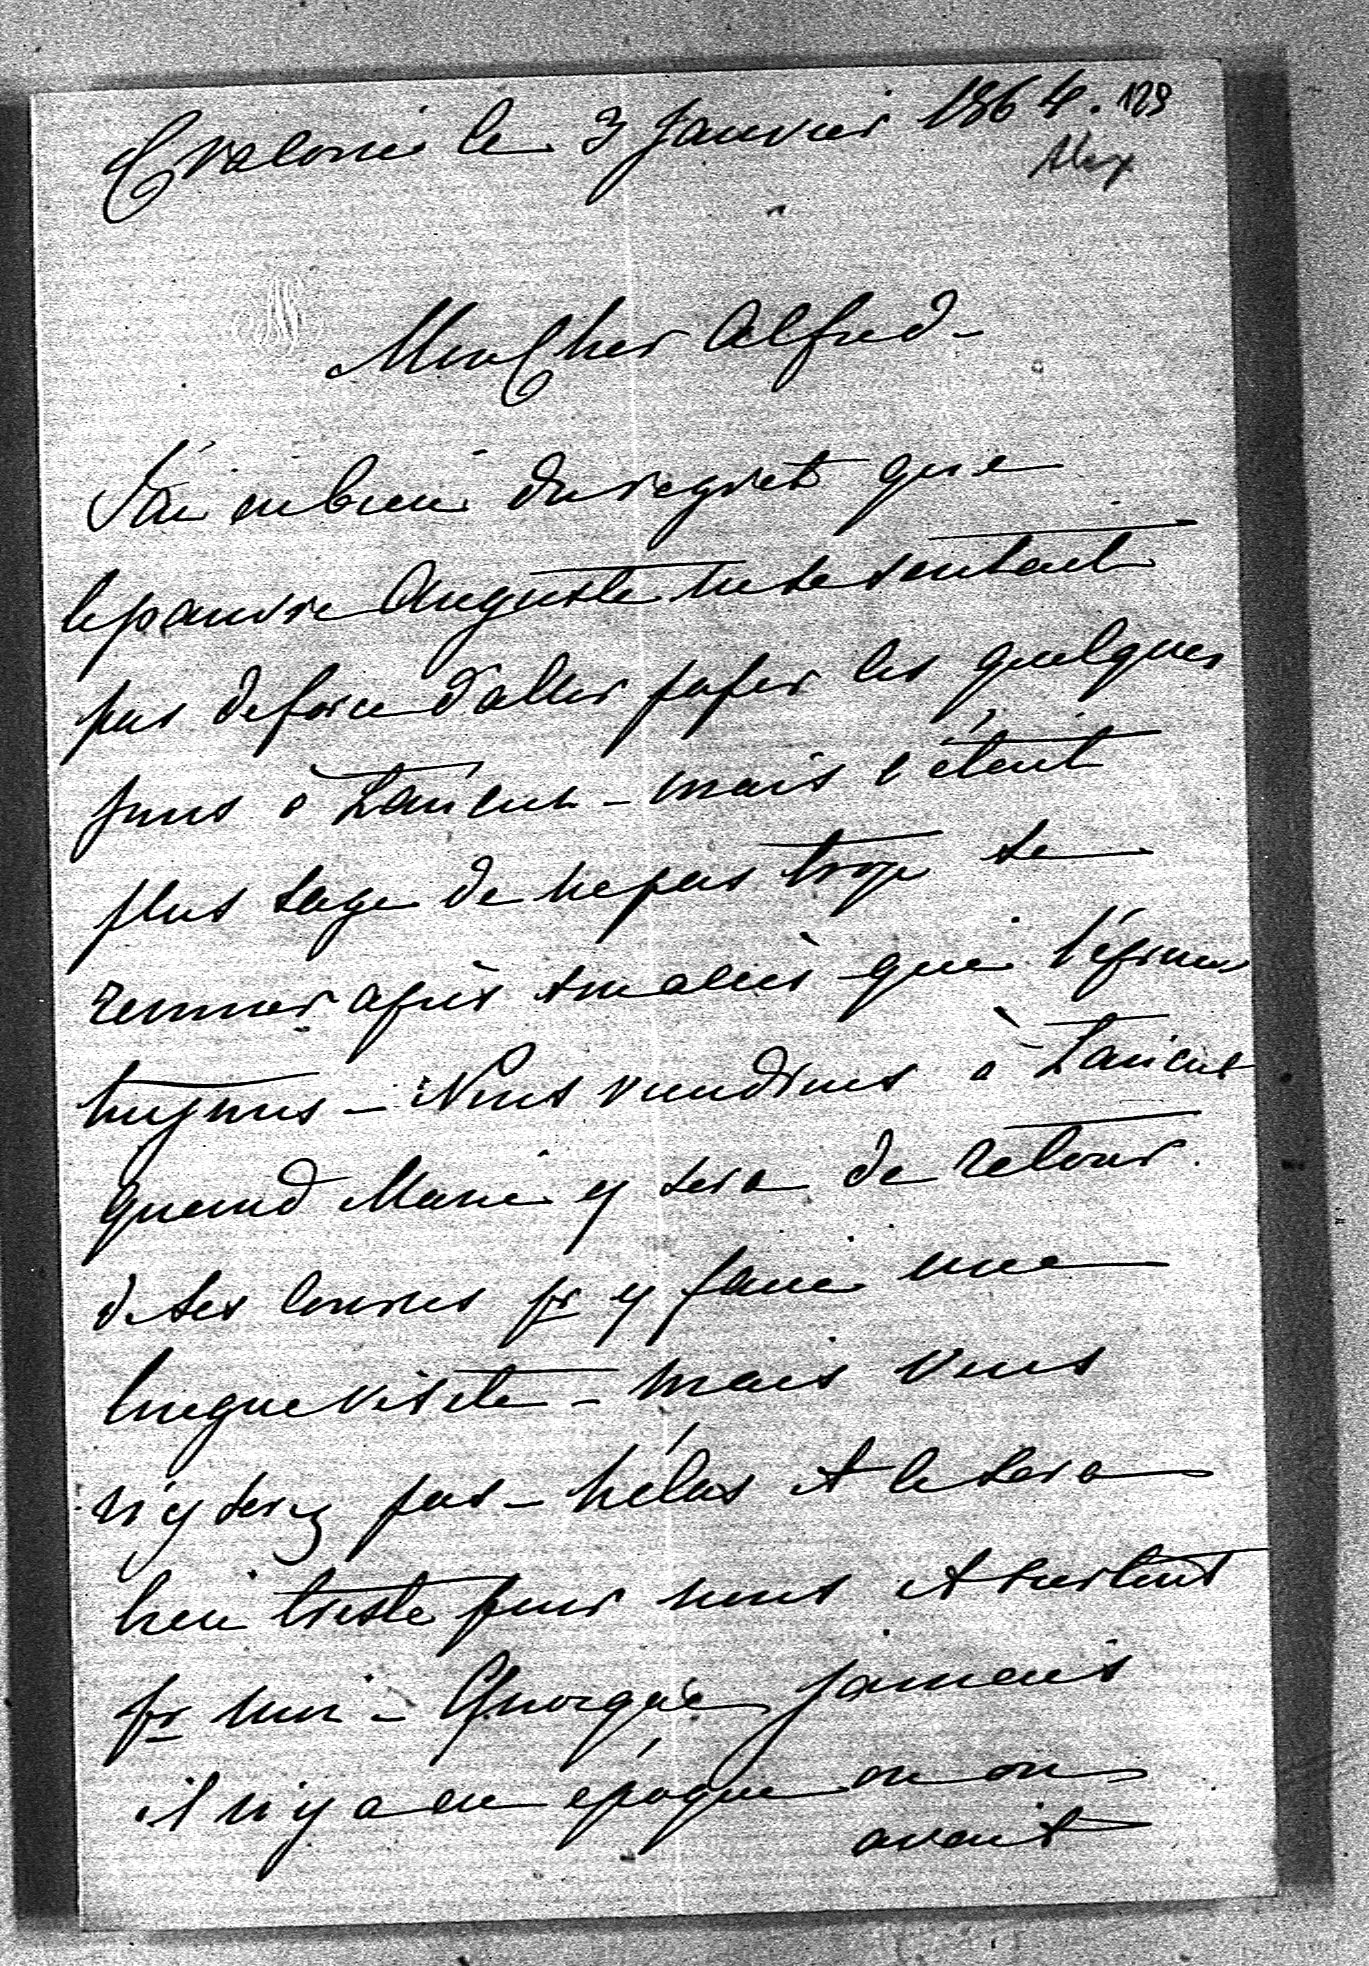 Cracovie le 3 Janvier 1864. 129
Alex
Mon Cher Alfred -
J'ai eu bien du regret que
le pauvre Auguste ne se sentait
pas de force d'aller passer les quelques
jours à Łańcut - mais c'était
plus sage de ne pas trop se
remuer après
toujours - Nous viendrons à Łańcut
quand Marie y sera de retour
de ses courses pr y faire une
longue visite - mais vous
n'y serez pas - hélas et ce sera
bien triste pour nous et surtout
pr moi - Quoique jamais
il n'y a eu époque ou on
avait